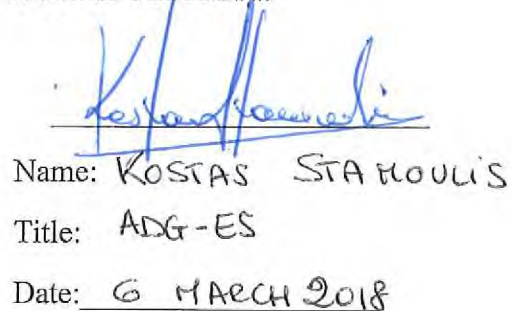 Name: KOSTAS STAMOULIS
Title: ADG-ES
Date: 6 MARCH 2018